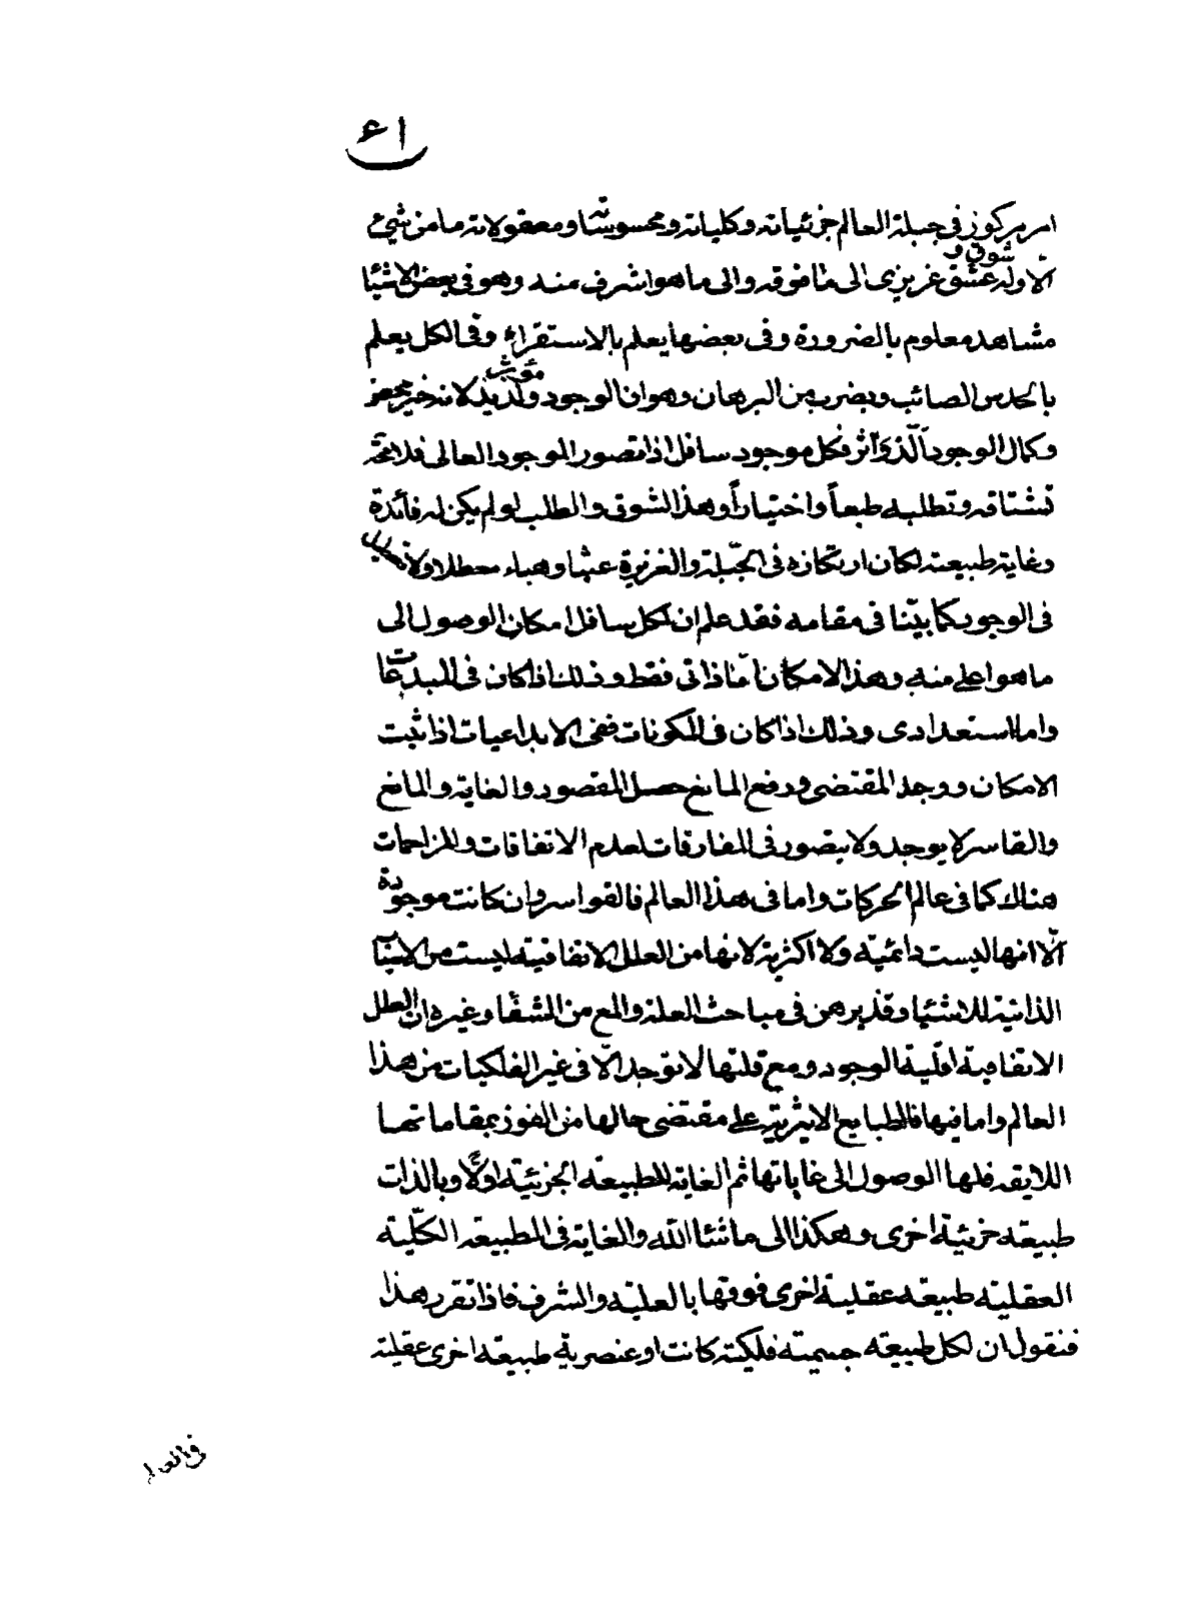 ٤١
امر مركوز فى جبلة العالم جزئياته وكلياته ومحسوساته ومعقولاته ما من شيئ
الا وله عشق شوق و غريزى الى ما فوقه والى ما هو اشرف منه وهو فى بعض الاشيا
مشاهد معلوم بالضرورة وفى بعضها يعلم بالاستقراء وفى الكل يعلم
بالحدس الصائب وبضرب من البرهان وهو ان الوجود مؤثر ولذيذ لانه خير محض
وكمال الوجود الذ وآثر فكل موجود سافل اذا تصور الموجود العالى فلا محة
تشتاقه وتطلبه طبعاً واختياراً وهذا الشوق والطلب لو لم يكن له فائدة
وغاية طبيعته لكان ارتكازه فى الجبّلة والغريزة عبثا وهباء معطلا ولا تعطيل
فى الوجود كما بيّنا فى مقامه فقد علم ان لكل سافل امكان الوصول الى
ما هو اعلى منه وهذا الامكان امّا ذاتى فقط وذلك اذا كان فى المبدعات
واما استعدادى وذلك اذا كان فى المكونات ففى الابداعيات اذا ثبت
الامكان ووجد المقتضى ورفع المانع حصل المقصود والغاية والمانع
والقاسر لا يوجد ولا يتصور فى المفارقات لعدم الاتفاقات والمزاحمات
هناك كما فى عالم الحركات واما فى هذا العالم فالقواسر وان كانت موجودة
الّا انها ليست دائميّة ولا اكثرية لانها من العلل الاتفاقية ليست من الاسباب
الذاتية للاشيا وقد برهن فى مباحث العلة والمع من الشفا وغيره ان العلل
الاتفاقية اقلية الوجود ومع قلتها لا توجد الّا فى غير الفلكيات من هذا
العالم واما فيها فالطبايع الاثيرية على مقتضى حالها من الفوز بمقاماتها
اللايقه فلها الوصول الى غاياتها ثم الغاية للطبيعه الجزئية اولًا وبالذات
طبيعة جزئية اخرى وهكذا الى ما شا الله والغاية فى الطبيعه الكلّية
العقلية طبيعه عقلية اخرى فوقها بالعلية والشرف فاذا تقرر هذا
فنقول ان لكل طبيعه جسمية فلكية كانت او عنصرية طبيعه اخرى عقلية
فى العالم